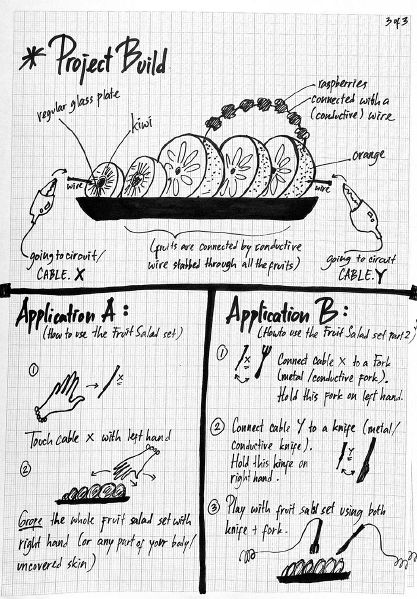 3 of 3
* Project Build
raspberries
connected with a
(conductive) wire
regular glass plate
kiwi
orange
wire
wire
going to circuit/
CABLE. X
(fruits are connected by conductive
wire stabbed through all the fruits)
going to circuit
CABLE. Y
Application A:
(How to use the Fruit Salad set)
1
X
Touch cable X with left hand
2
Grope the whole fruit salad set with
right hand (or any part of your body/
uncovered skin)
Application B:
(How to use the Fruit Salad set part 2)
1
X
Connect cable X to a Fork
(metal/conductive fork).
Hold this fork on left hand.
2
Connect cable Y to a knife (metal/
conductive knife).
Hold this knife on
right hand.
Y
3
Play with fruit salad set using both
knife + fork.